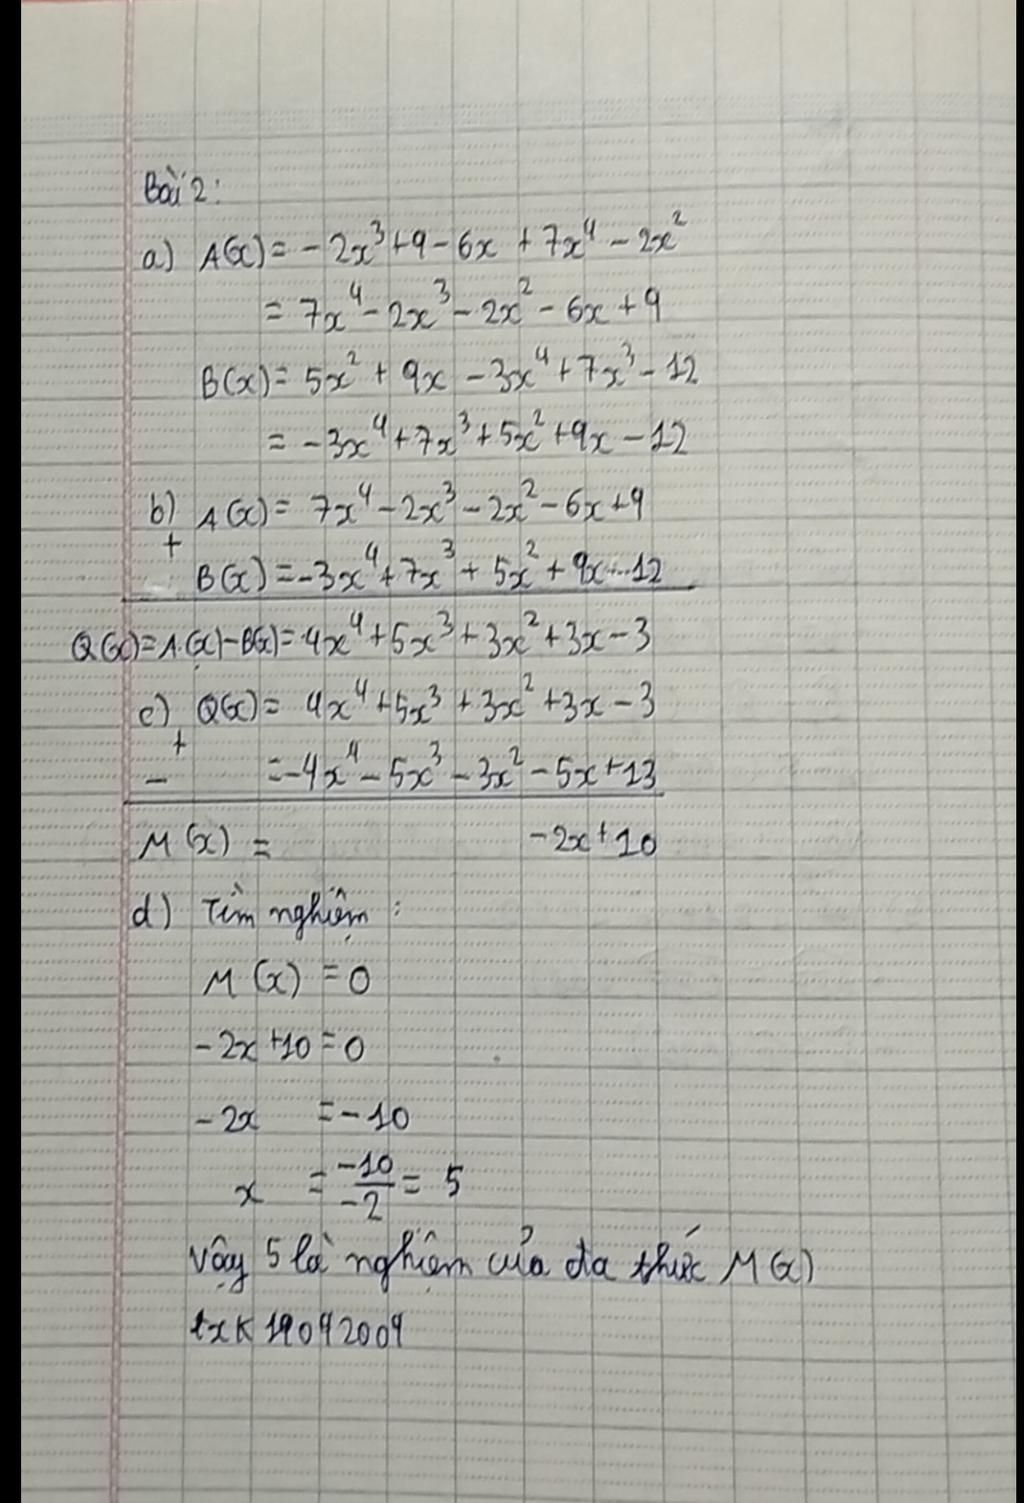 Bài 2:
a) A(x) = -2x³+9-6x+7x⁴-2x²
= 7x⁴-2x³-2x²-6x+9
B(x) = 5x²+9x-3x⁴+7x³-12
= -3x⁴+7x³+5x²+9x-12
b) A(x) = 7x⁴-2x³-2x²-6x+9
+
B(x) = -3x⁴+7x³+5x²+9x-12
Q(x)=A(x)-B(x)=4x⁴+5x³+3x²+3x-3
c) Q(x) = 4x⁴+5x³+3x²+3x-3
+
- = -4x⁴-5x³-3x²-5x+13
M(x) = -2x+10
d) Tìm nghiệm:
M(x) = 0
-2x+10=0
-2x = -10
x = -10/-2 = 5
Vậy 5 là nghiệm của đa thức M(x)
txk19042009